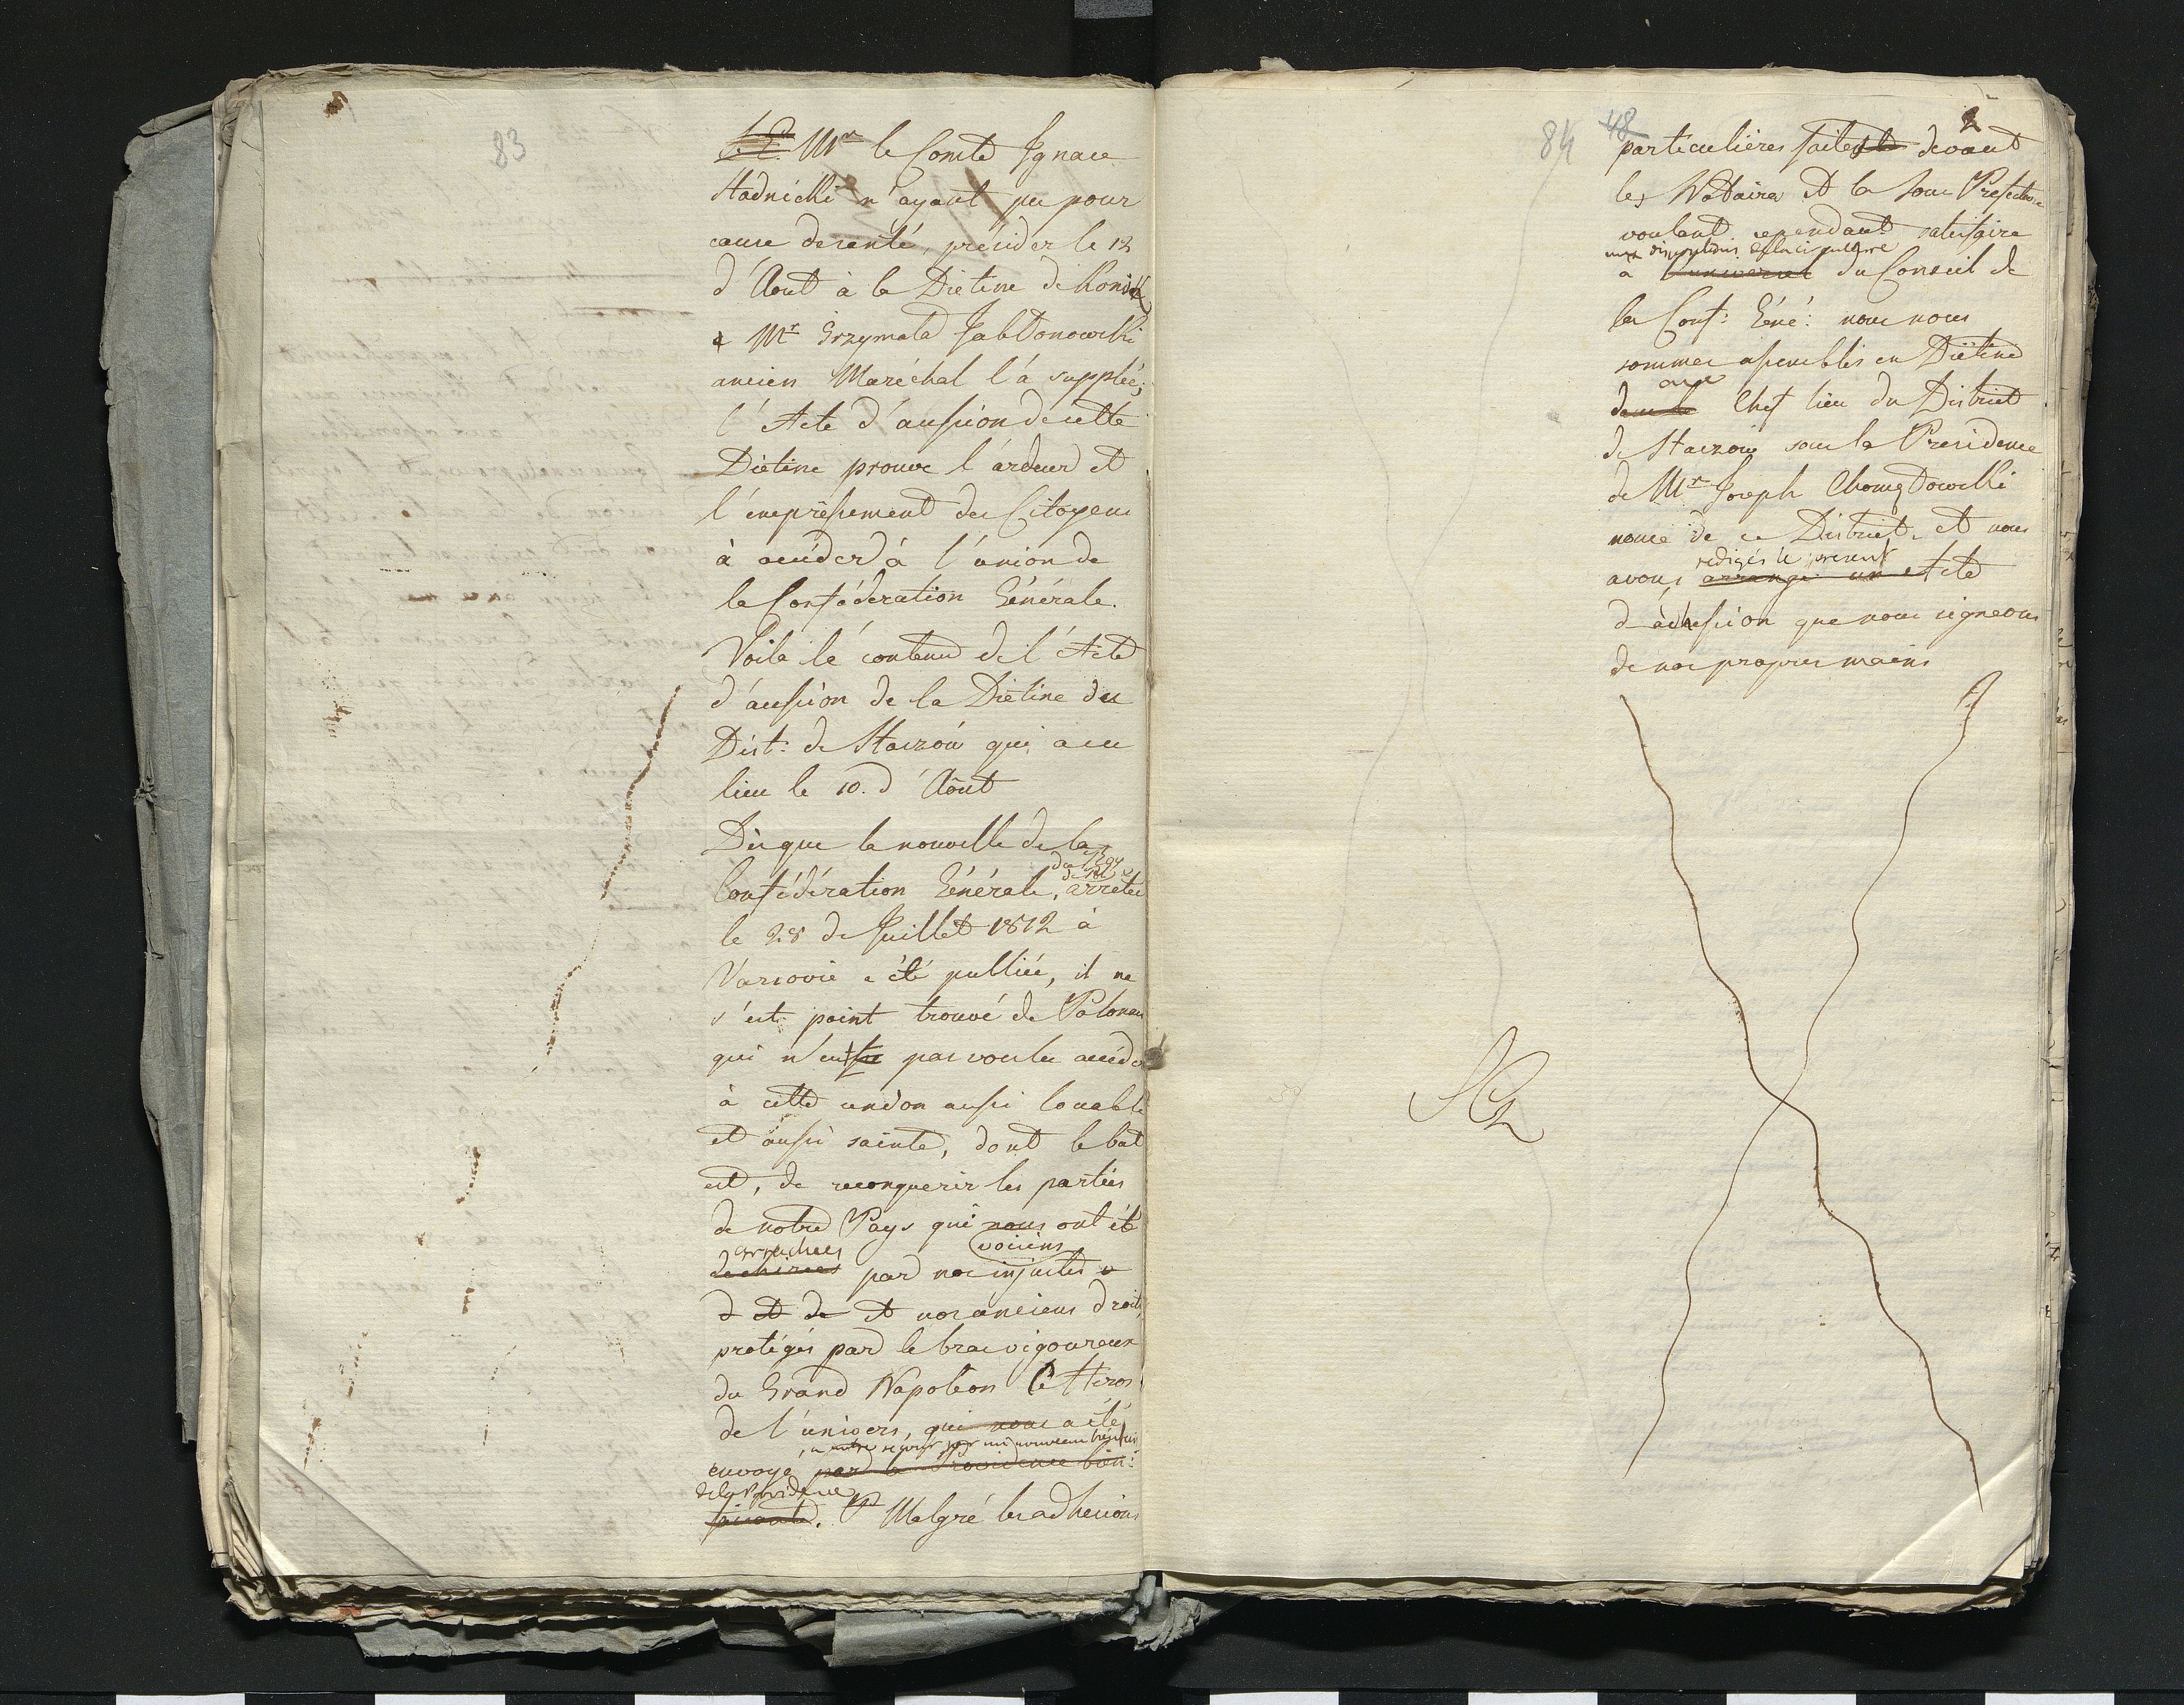 83
Mr le Comte Ignace
Stadnicki n'ayant pu pour
cause de santé, présider le 12
d'Aout à la Diétine de Konsk
Mr Grzymala Jabłonowski
ancien Maréchal l'a supplée;
l'Acte d'accession de cette
Diétine prouve l'ardeur et
l'empressement des Citoyens
à accéder à l'union de
la Conféderation Générale.
Voila le contenu de l'Acte
d'accession de la Diétine du
Dist: de Staszów qui a eu
lieu le 10. d'Août
Dès que la nouvelle de la
Confédération Générale, arretée
le 28 de Juillet 1812 à
Varsovie a été publiée, il ne
s'est point trouvé de Polonais
qui n'eut pas voulu accéder
à cette union aussi louable
et aussi sainte, dont le but
est, de reconquerir les parties
de notre Pays qui nous ont été
arrachées voisins
dechirées par nos injustes
d et de et nos anciens droits
protégés par le bras vigoureux
du Grand Napoléon le Heros
de l'univers, qui nous a été
a notre secour par un nouveau
envoyé par la Providence bien:
de la Providence
faisante. Malgré les adhesions
84
48
2
particulières faites devant
les Notaires et la Sous Prefecture
voulant cependant satisfaire
aux dispositions de la circulaire
a l'universel du Conseil de
la Conf: Géné: nous nous
sommes assemblés en Diétine
au
dans le Chef lieu du District
de Staszow sous la Presidence
de Mr Joseph Chomętowski
nonce de ce District. et nous
redigés le present
avons arrangé un Acte
d'adhesion que nous signeons
de nos propres mains